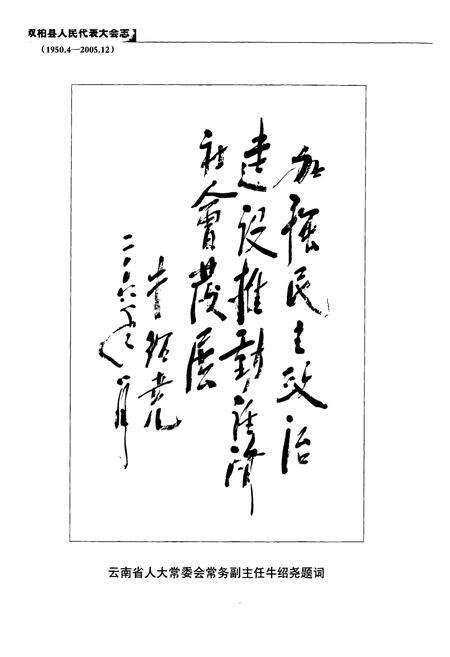 双柏县人民代表大会志
(1950.4—2005.12)
加强民主政治
建设推動经济
社會發展
牛绍尧
二〇〇六年八月
云南省人大常委会常务副主任牛绍尧题词